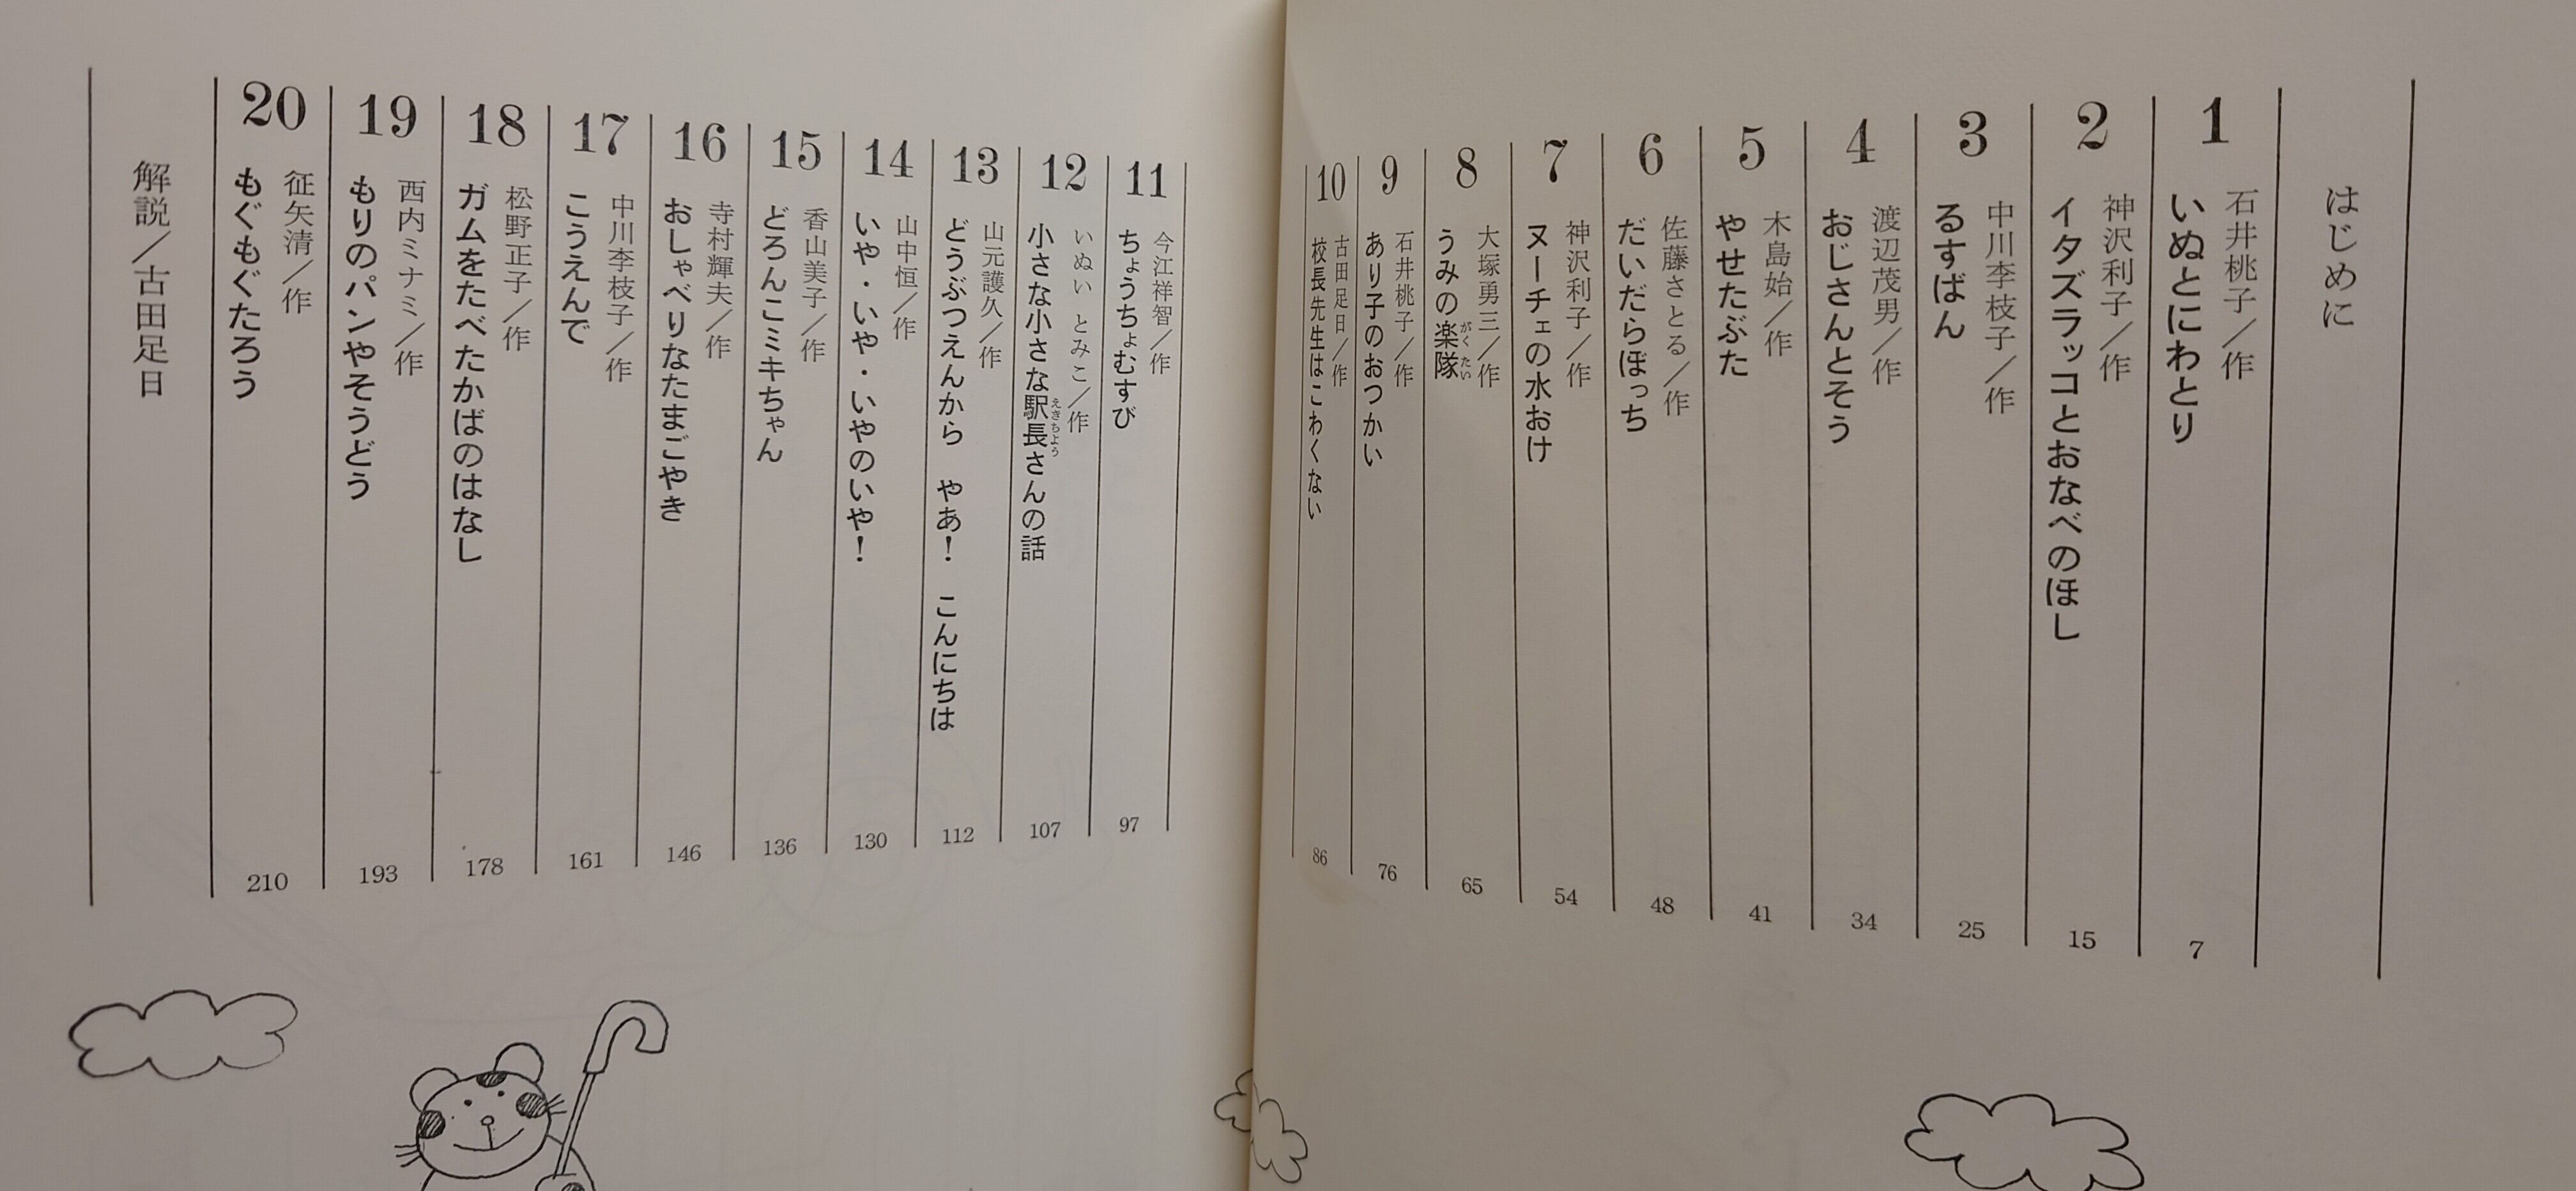 はじめに
1
石井桃子／作
いぬとにわとり
7
2
神沢利子／作
イタズラッコとおなべのほし
15
3
中川李枝子／作
るすばん
25
4
渡辺茂男／作
おじさんとそう
34
5
木島始／作
やせたぶた
41
6
佐藤さとる／作
だいだらぼっち
48
7
神沢利子／作
ヌーチェの水おけ
54
8
大塚勇三／作
うみの楽隊
がくたい
65
9
石井桃子／作
あり子のおつかい
76
10
古田足日／作
校長先生はこわくない
86
11
今江祥智／作
ちょうちょむすび
97
12
いぬい とみこ／作
小さな小さな駅長さんの話
えきちょう
107
13
山元護久／作
どうぶつえんから やあ！ こんにちは
112
14
山中恒／作
いや・いや・いやのいや！
130
15
香山美子／作
どろんこミキちゃん
136
16
寺村輝夫／作
おしゃべりなたまごやき
146
17
中川李枝子／作
こうえんで
161
18
松野正子／作
ガムをたべたかばのはなし
178
19
西内ミナミ／作
もりのパンやそうどう
193
20
征矢清／作
もぐもぐたろう
210
解説／古田足日